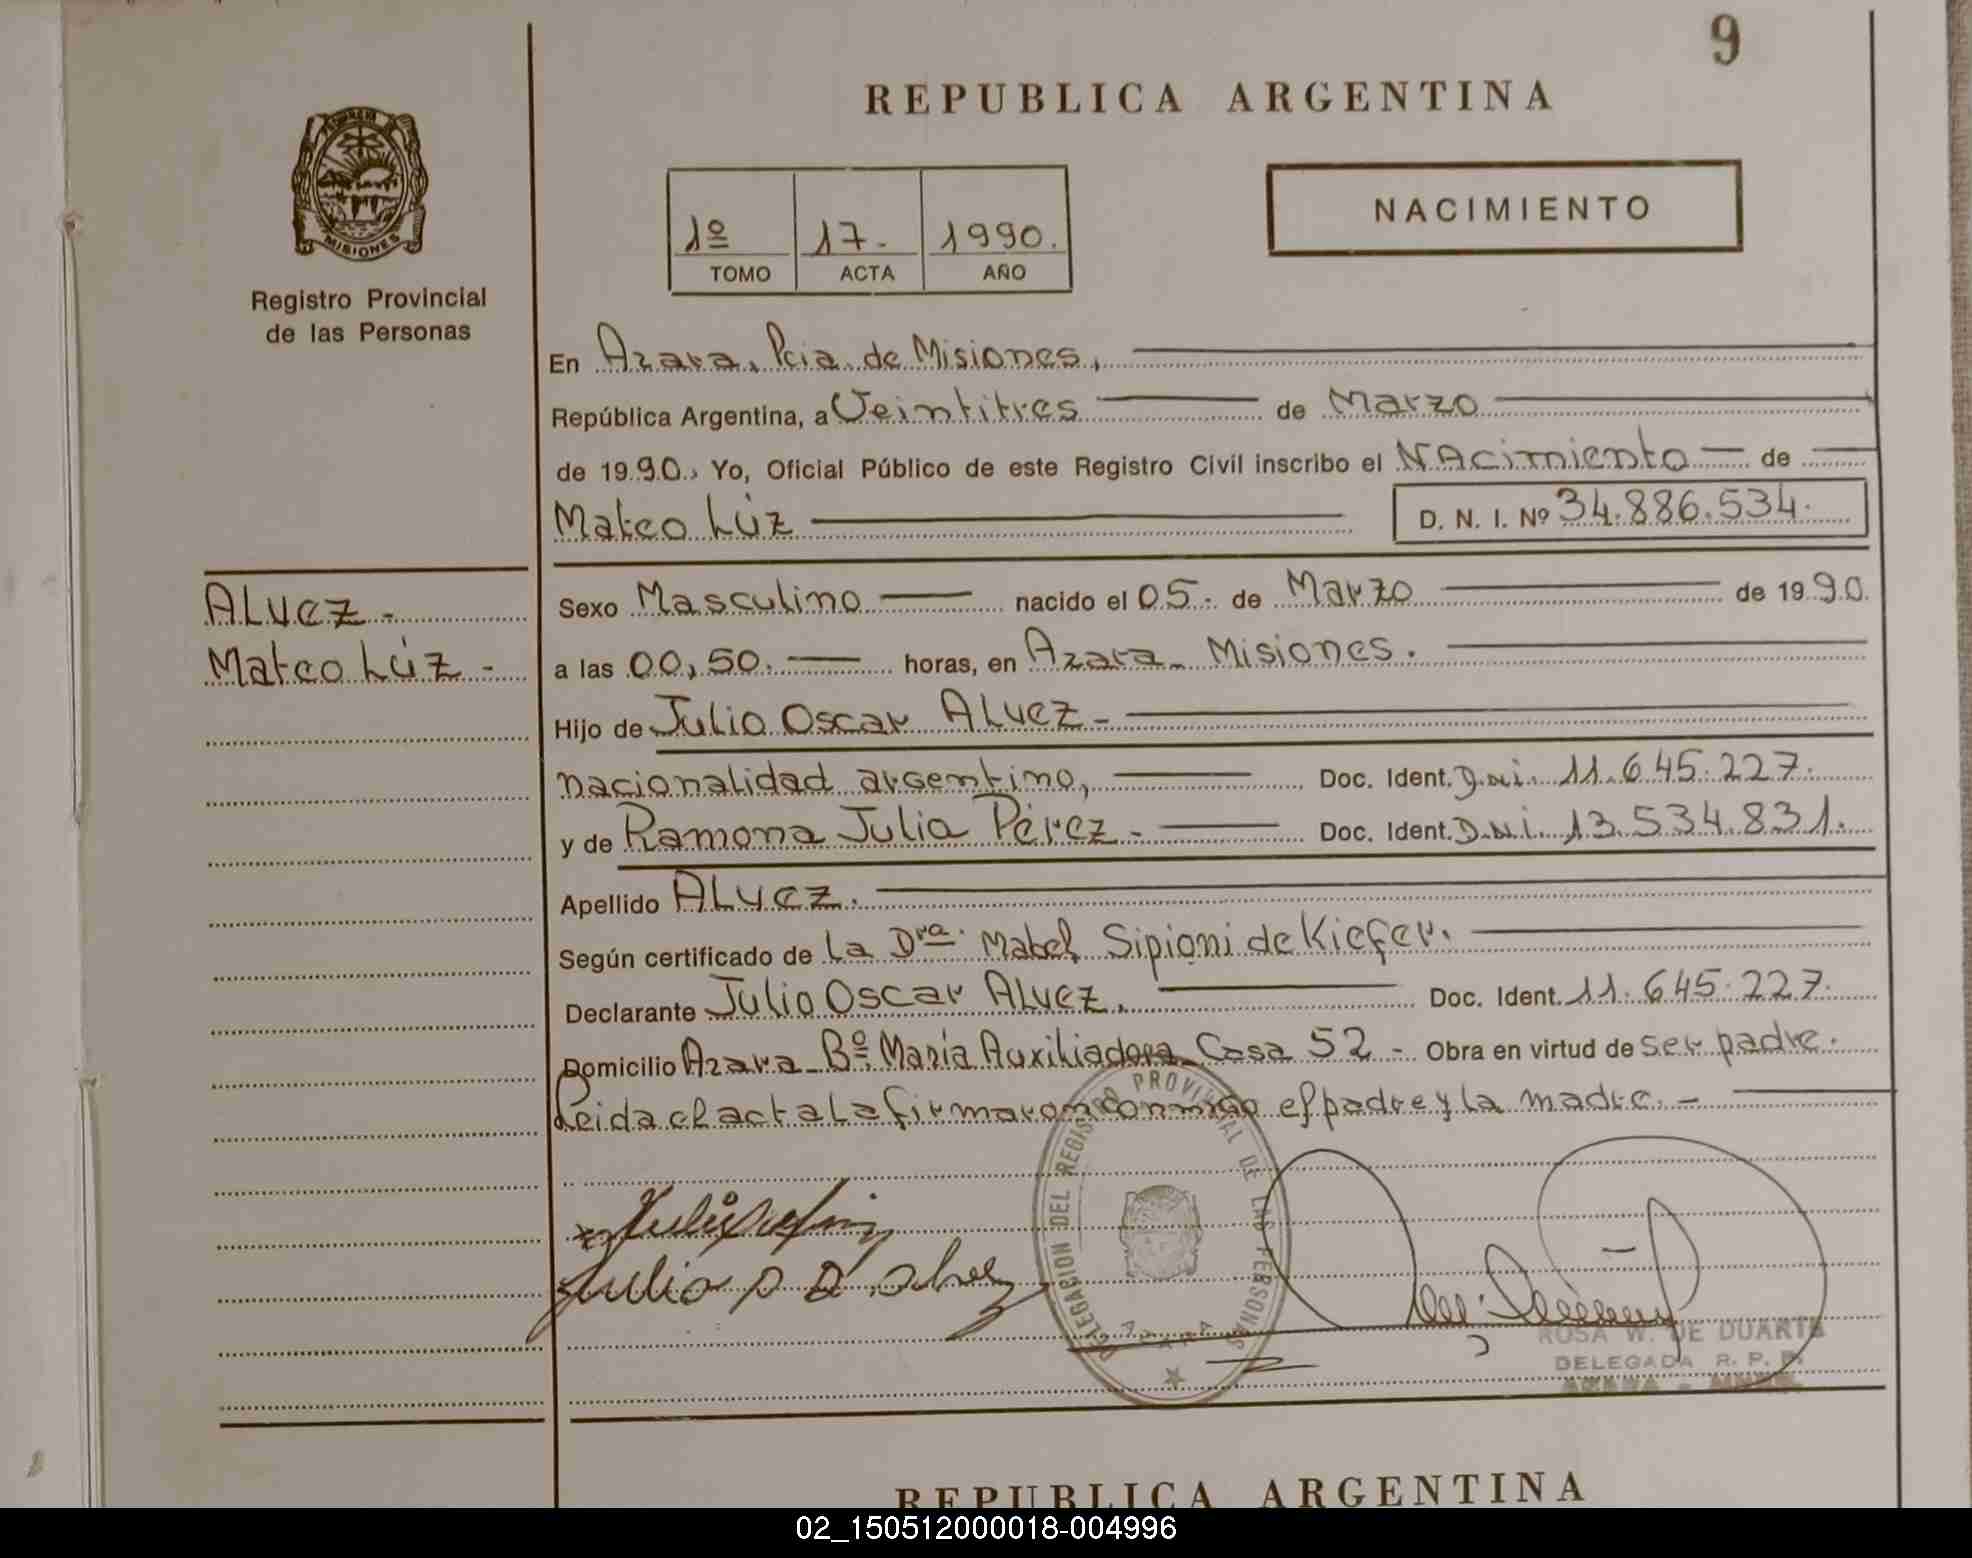 9
REPUBLICA ARGENTINA
MISIONES
Registro Provincial
de las Personas
1º 17. 1990.
TOMO ACTA AÑO
NACIMIENTO
En Azara, Pcia. de Misiones,
República Argentina, a Veintitres de Marzo
de 1990., Yo, Oficial Público de este Registro Civil inscribo el NAcimiento de
Mateo Lúz D. N. I. Nº 34.886.534.
ALvez.-
Mateo Lúz-
Sexo Masculino nacido el 05. de Marzo de 1990.
a las 00,50. horas, en Azara- Misiones.
Hijo de Julio Oscar ALvez-
nacionalidad argentino, Doc. Ident. D.n.i. 11.645.227.
y de Ramona Julia Pérez- Doc. Ident. D.N.i. 13.534.831.
Apellido ALvez.
Según certificado de La Dra. Mabel Sipioni de Kiefer.
Declarante Julio Oscar ALvez, Doc. Ident. 11.645.227.
Domicilio Azara- Bº María Auxiliadora- Casa 52- Obra en virtud de ser padre.
Leida el acta la firmaron conmigo el padre y la madre.-
DELEGACION DEL REGISTRO PROVINCIAL DE LAS PERSONAS
AZARA
ROSA W. DE DUARTE
DELEGADA R. P. P.
REPUBLICA ARGENTINA
02_150512000018-004996